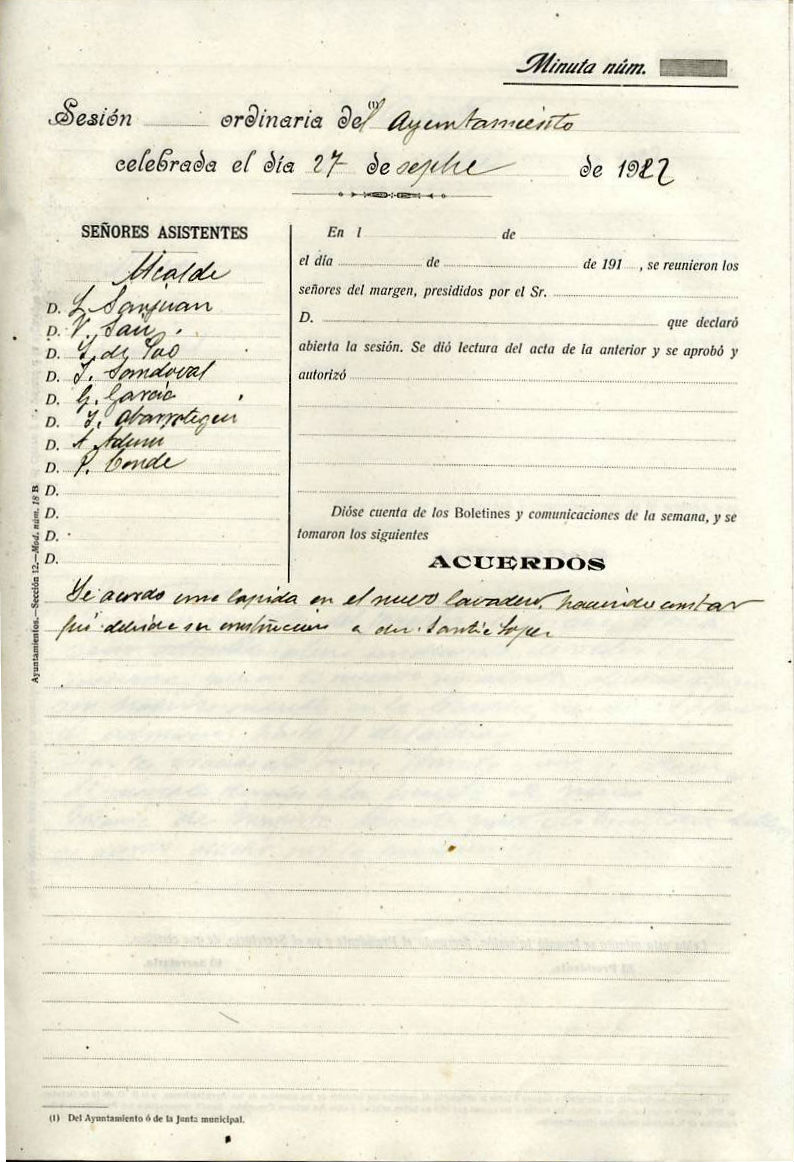 Minuta núm.
Sesión ordinaria del (1) Ayuntamiento
celebrada el día 27 de sepbre de 1922
SEÑORES ASISTENTES
Alcalde
D. L. Sanjuan
D. V. Saiz
D. Y. de Pao
D. T. Sandoval
D. G. Garcia
D. Y. Abarrategui
D. A. Aduna
D. P. Conde
D.
D.
D.
D.
En l de
el día de de 191 , se reunieron los
señores del margen, presididos por el Sr.
D. que declaró
abierta la sesión. Se dió lectura del acta de la anterior y se aprobó y
autorizó
Dióse cuenta de los Boletines y comunicaciones de la semana, y se
tomaron los siguientes
ACUERDOS
Se acordo una lapida en el nuevo lavadero, haciendo constar
fué debida su construccion a don Santos Lopez
Ayuntamientos.—Sección 12.—Mod. núm. 18 B
(1) Del Ayuntamiento ó de la Junta municipal.